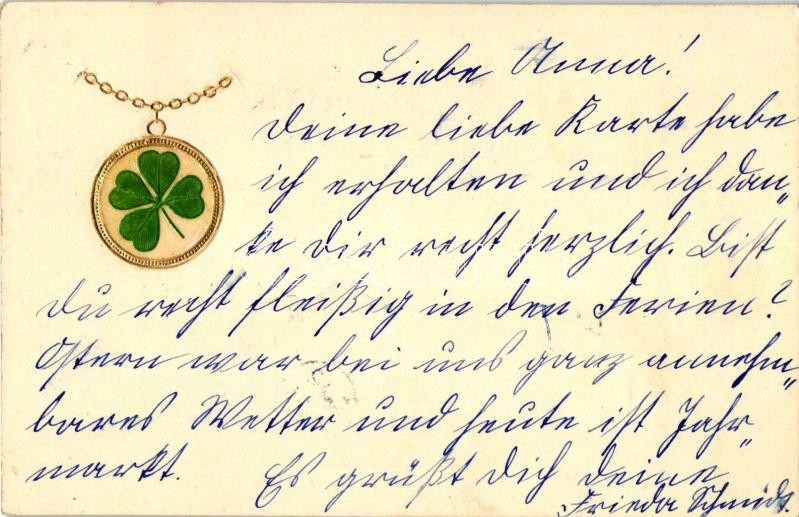 Liebe Anna!
Deine liebe Karte habe
ich erhalten und ich dan„
ke Dir recht herzlich. Bist
Du recht fleißig in den Ferien?
Ostern war bei uns ganz annehm„
bares Wetter und heute ist Jahr„
markt. Es grüßt Dich Deine
Frieda Schmidt.